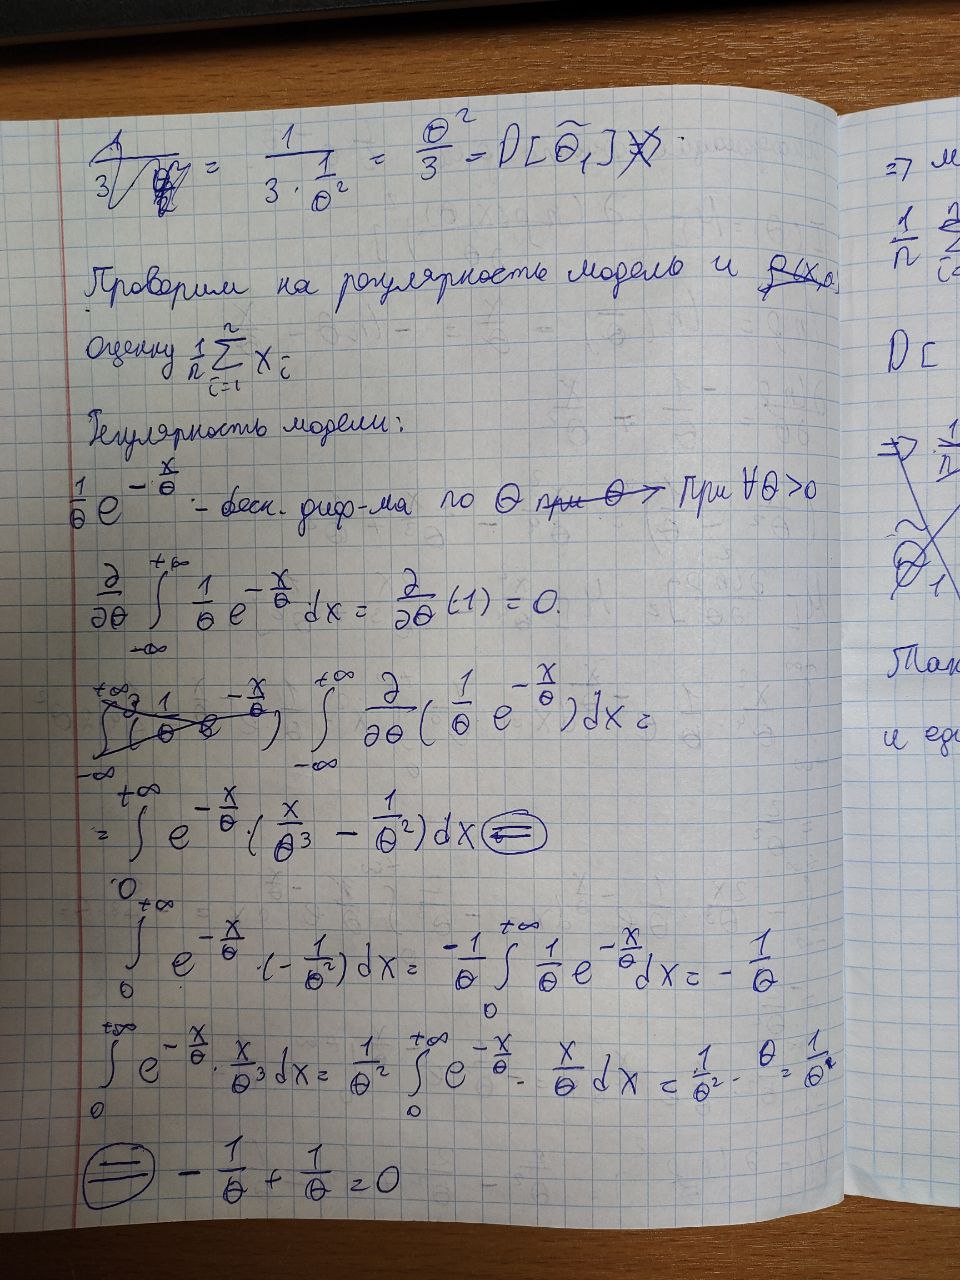 1/3 = 1/(3 · 1/θ²) = θ²/3 = D[θ̃₁]
Проверим на регулярность модель и
оценку 1/n ∑_{i=1}^{n} x_i
Регулярность модели:
1/θ e^{-x/θ} - беск. диф-ма по θ при θ > При ∀θ>0
∂/∂θ ∫_{-∞}^{+∞} 1/θ e^{-x/θ} dx = ∂/∂θ (1) = 0.
∫_{-∞}^{+∞} ∂/∂θ (1/θ e^{-x/θ}) dx =
= ∫_{0}^{+∞} e^{-x/θ} · (x/θ³ - 1/θ²) dx (=)
∫_{0}^{+∞} e^{-x/θ} · (-1/θ²) dx = -1/θ ∫_{0}^{+∞} 1/θ e^{-x/θ} dx = -1/θ
∫_{0}^{+∞} e^{-x/θ} · x/θ³ dx = 1/θ² ∫_{0}^{+∞} e^{-x/θ} · x/θ dx = 1/θ² · θ = 1/θ
(=) -1/θ + 1/θ = 0
=> м
1/n ∑
D[
=> 1/n
θ̃₁
Так
и еди